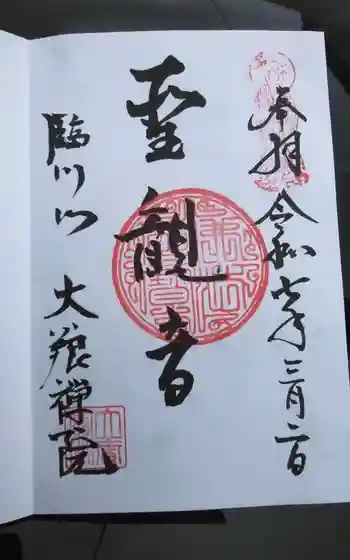 奉拝 令和七年三月二日
聖観音
臨川山 大義禅院